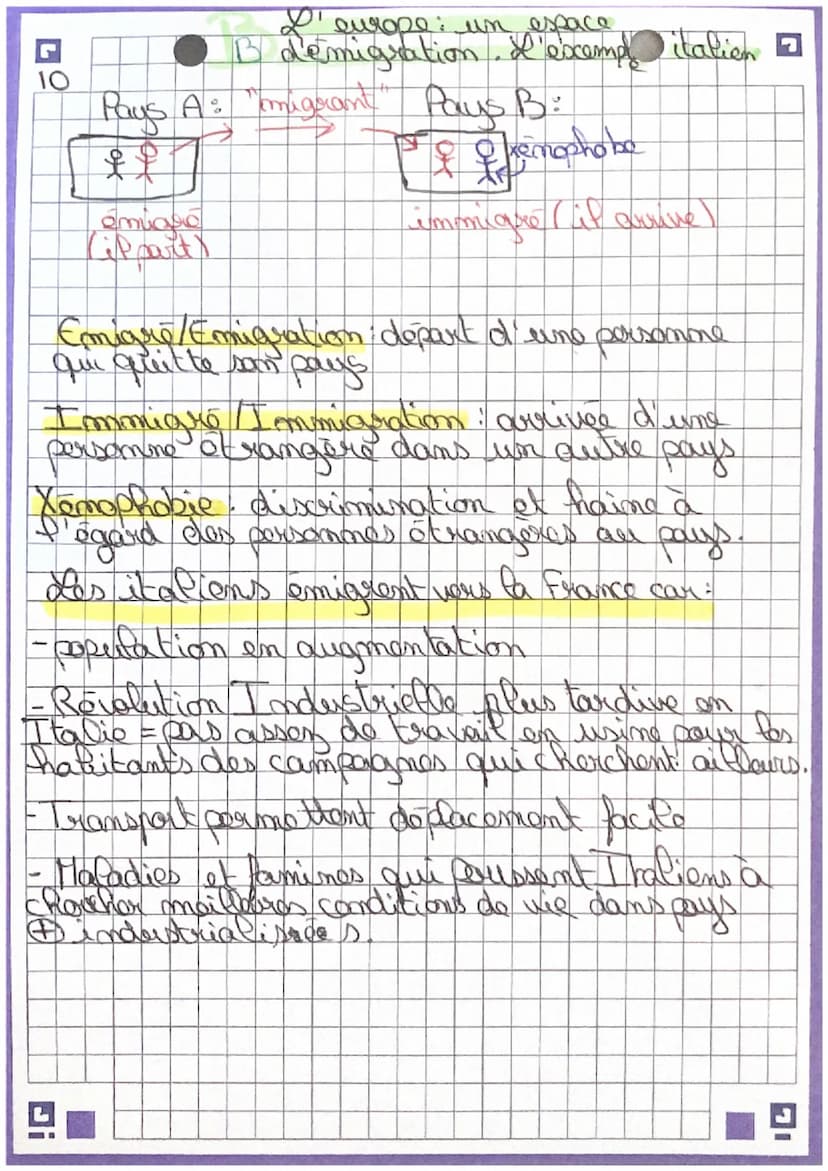 L'europe : un espace
B d'émigration. L'exemple italien
10
Pays A : "migrant" Pays B :
xénophobe
émigré immigré (il arrive)
(il part)
Emigré/Emigration : départ d'une personne
qui quitte son pays
Immigré/Immigration : arrivée d'une
personne étrangère dans un autre pays
Xénophobie : discrimination et haine à
l'égard des personnes étrangères au pays.
Les italiens émigrent vers la France car :
- population en augmentation
- Révolution Industrielle plus tardive en
Italie = pas assez de travail en usine pour les
habitants des campagnes qui cherchent ailleurs.
- Transport permettent déplacement facile
- Maladies et famines qui poussent Italiens à
chercher meilleures conditions de vie dans pays
⊕ industrialisées.